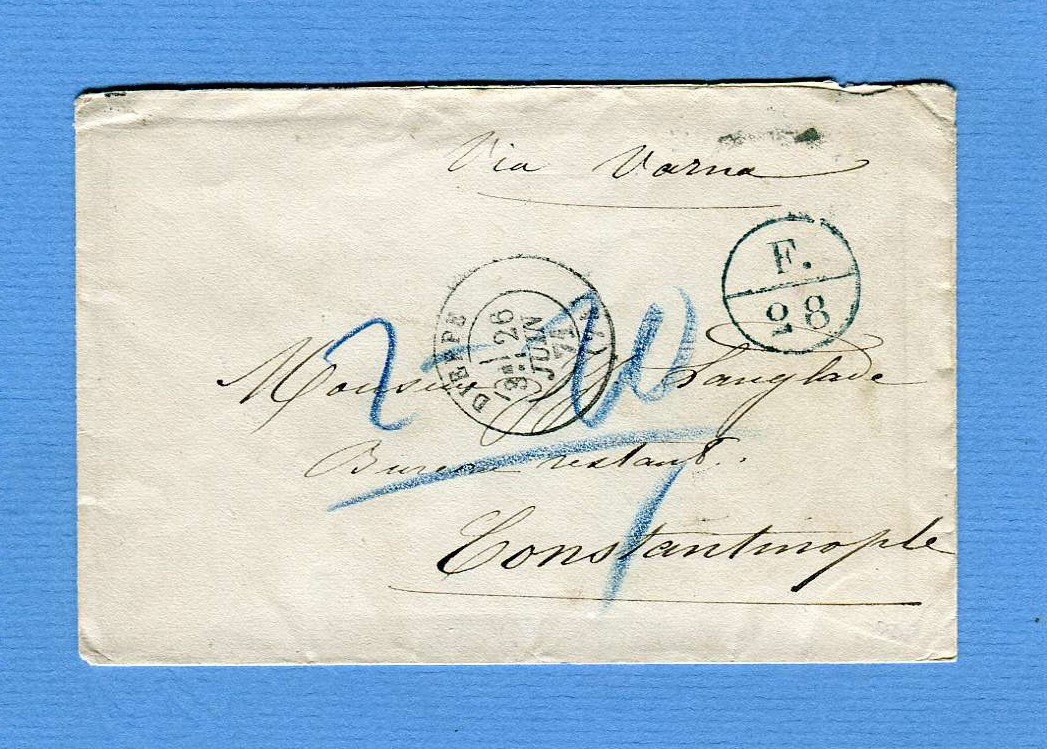 Via Varna
F.
28
DIEPPE
26
JUIN
71
Monsieur Langlade
Bureau restant.
Constantinople